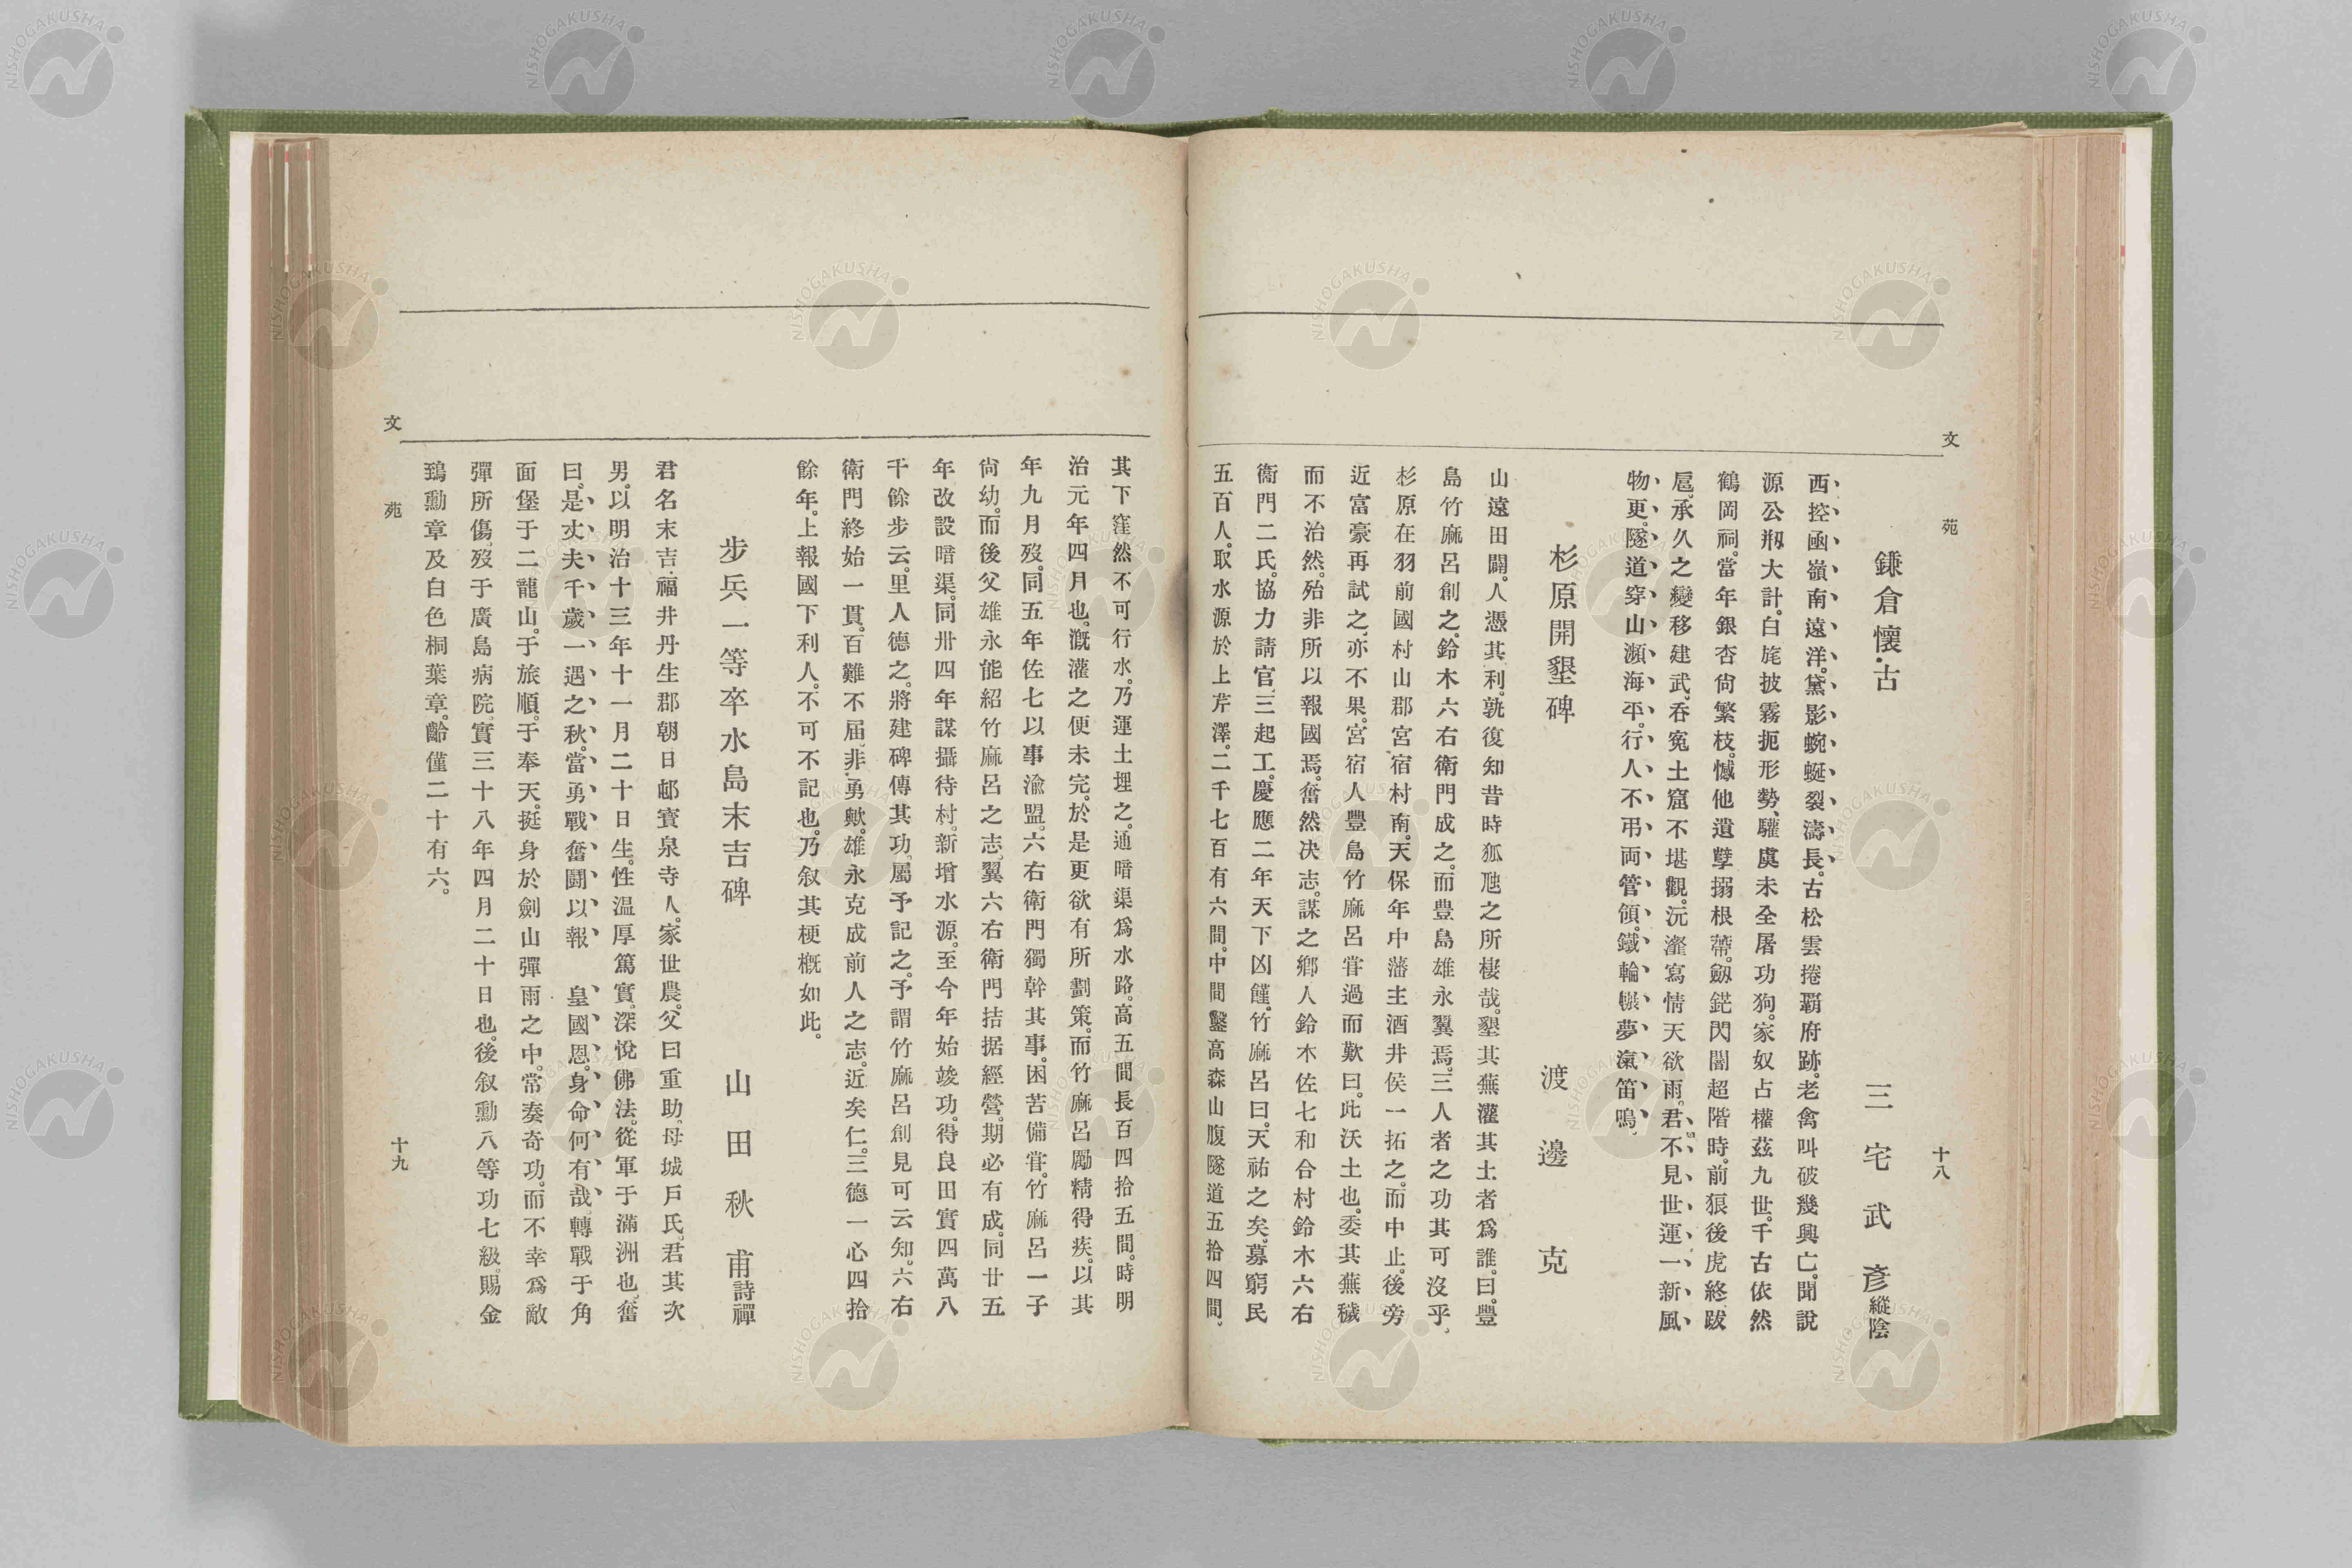 文苑
十八
鎌倉懷古
三宅武彥縱陰
西控函嶺南遠洋。黛影蜿蜒裂濤長。古松雲捲覇府跡。老禽叫破幾興亡。聞說
源公刱大計。白旄披霧扼形勢、驩虞未全屠功狗。家奴占權茲九世。千古依然
鶴岡祠。當年銀杏尙繁枝。憾他遺孽搦根蔕。劔鋩閃闇超階時。前狼後虎終跋
扈。承久之變移建武。呑寃土窟不堪觀。沅瀣寫情天欲雨。君不見世運一新風
物更。隧道穿山瀕海平。行人不弔両管領。鐵輪輾夢滊笛鳴、
杉原開墾碑
渡邊克
山遠田闢。人憑其利。孰復知昔時狐虺之所棲哉。墾其蕪灌其土者爲誰。曰。豐
島竹麻呂創之。鈴木六右衛門成之。而豐島雄永翼焉。三人者之功其可沒乎、
杉原在羽前國村山郡宮宿村南。天保年中藩主酒井侯一拓之。而中止。後旁
近富豪再試之、亦不果。宮宿人豐島竹麻呂甞過而歎曰。此沃土也。委其蕪穢
而不治然。殆非所以報國焉。奮然决志。謀之鄕人鈴木佐七和合村鈴木六右
衞門二氏。協力請官、三起工。慶應二年天下凶饉。竹麻呂曰。天祐之矣。募窮民
五百人。取水源於上芹澤。二千七百有六間。中間鑿高森山腹隧道五拾四間、
其下窪然不可行水。乃運土埋之。通暗渠爲水路。高五間長百四拾五間。時明
治元年四月也。漑灌之便未完。於是更欲有所劃策。而竹麻呂勵精得疾。以其
年九月歿。同五年佐七以事渝盟。六右衛門獨幹其事。困苦備甞。竹麻呂一子
尙幼。而後父雄永能紹竹麻呂之志。翼六右衛門拮据經營。期必有成。同廿五
年改設暗渠。同卅四年謀攝待村。新增水源。至今年始竣功。得良田實四萬八
千餘步云。里人德之。將建碑傳其功。屬予記之。予謂竹麻呂創見可云知。六右
衛門終始一貫。百難不屆、非勇歟。雄永克成前人之志。近矣仁。三德一心四拾
餘年。上報國下利人。不可不記也。乃叙其梗概如此。
步兵一等卒水島末吉碑
山田秋甫詩禪
君名末吉。福井丹生郡朝日邨寶泉寺人。家世農。父曰重助。母城戶氏。君其次
男。以明治十三年十一月二十日生。性溫厚篤實。深悅佛法。從軍于滿洲也。奮
曰。是丈夫千歲一遇之秋。當勇戰奮鬪以報 皇國恩。身命何有哉。轉戰于角
面堡于二龍山。于旅順。于奉天。挺身於劍山彈雨之中。常奏奇功。而不幸爲敵
彈所傷。歿于廣島病院。實三十八年四月二十日也。後叙勳八等功七級。賜金
鵄勳章及白色桐葉章。齡僅二十有六。
文苑
十九